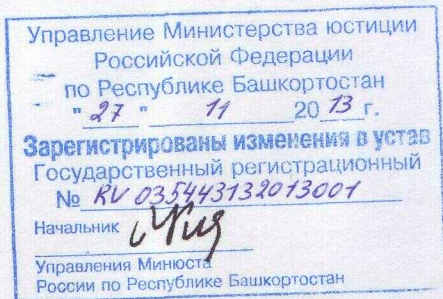 Управление Министерства юстиции
Российской Федерации
по Республике Башкортостан
" 27 " 11 20 13 г.
Зарегистрированы изменения в устав
Государственный регистрационный
№ RU 035443132013001
Начальник
Управления Минюста
России по Республике Башкортостан